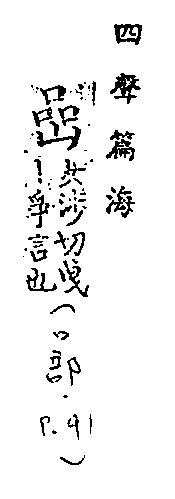 四聲篇海
女涉切曳
丨爭言也
(口部．P.91)